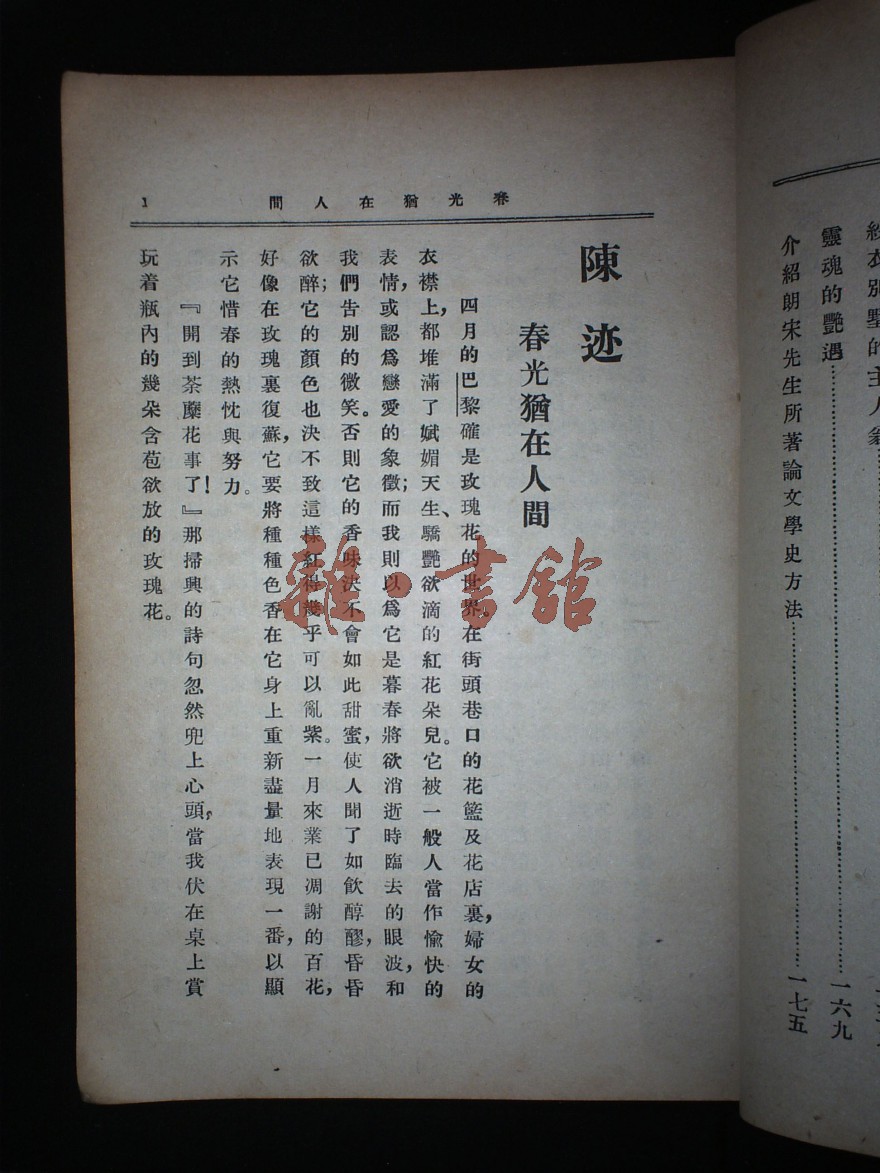 綠衣別墅的主人翁
靈魂的艷遇……一六九
介紹朗宋先生所著論文學史方法……一七五
春光猶在人間
1
陳迹
春光猶在人間
四月的巴黎確是玫瑰花的世界。在街頭巷口的花籃及花店裏，婦女的
衣襟上，都堆滿了斌媚天生、驕艷欲滴的紅花朵兒。它被一般人當作愉快的
表情，或認爲戀愛的象徵；而我則以爲它是暮春將欲消逝時臨去的眼波，和
我們告別的微笑。否則它的香味決不會如此甜蜜，使人聞了如飲醇醪，昏昏
欲醉；它的顏色也決不致這樣紅得幾乎可以亂紫。一月來業已凋謝的百花，
好像在玫瑰裏復蘇，它要將種種色香在它身上重新盡量地表現一番，以顯
示它惜春的熱忱與努力。
『開到荼蘼花事了！』那掃興的詩句忽然兜上心頭，當我伏在桌上賞
玩着瓶內的幾朵含苞欲放的玫瑰花。
雜·書館